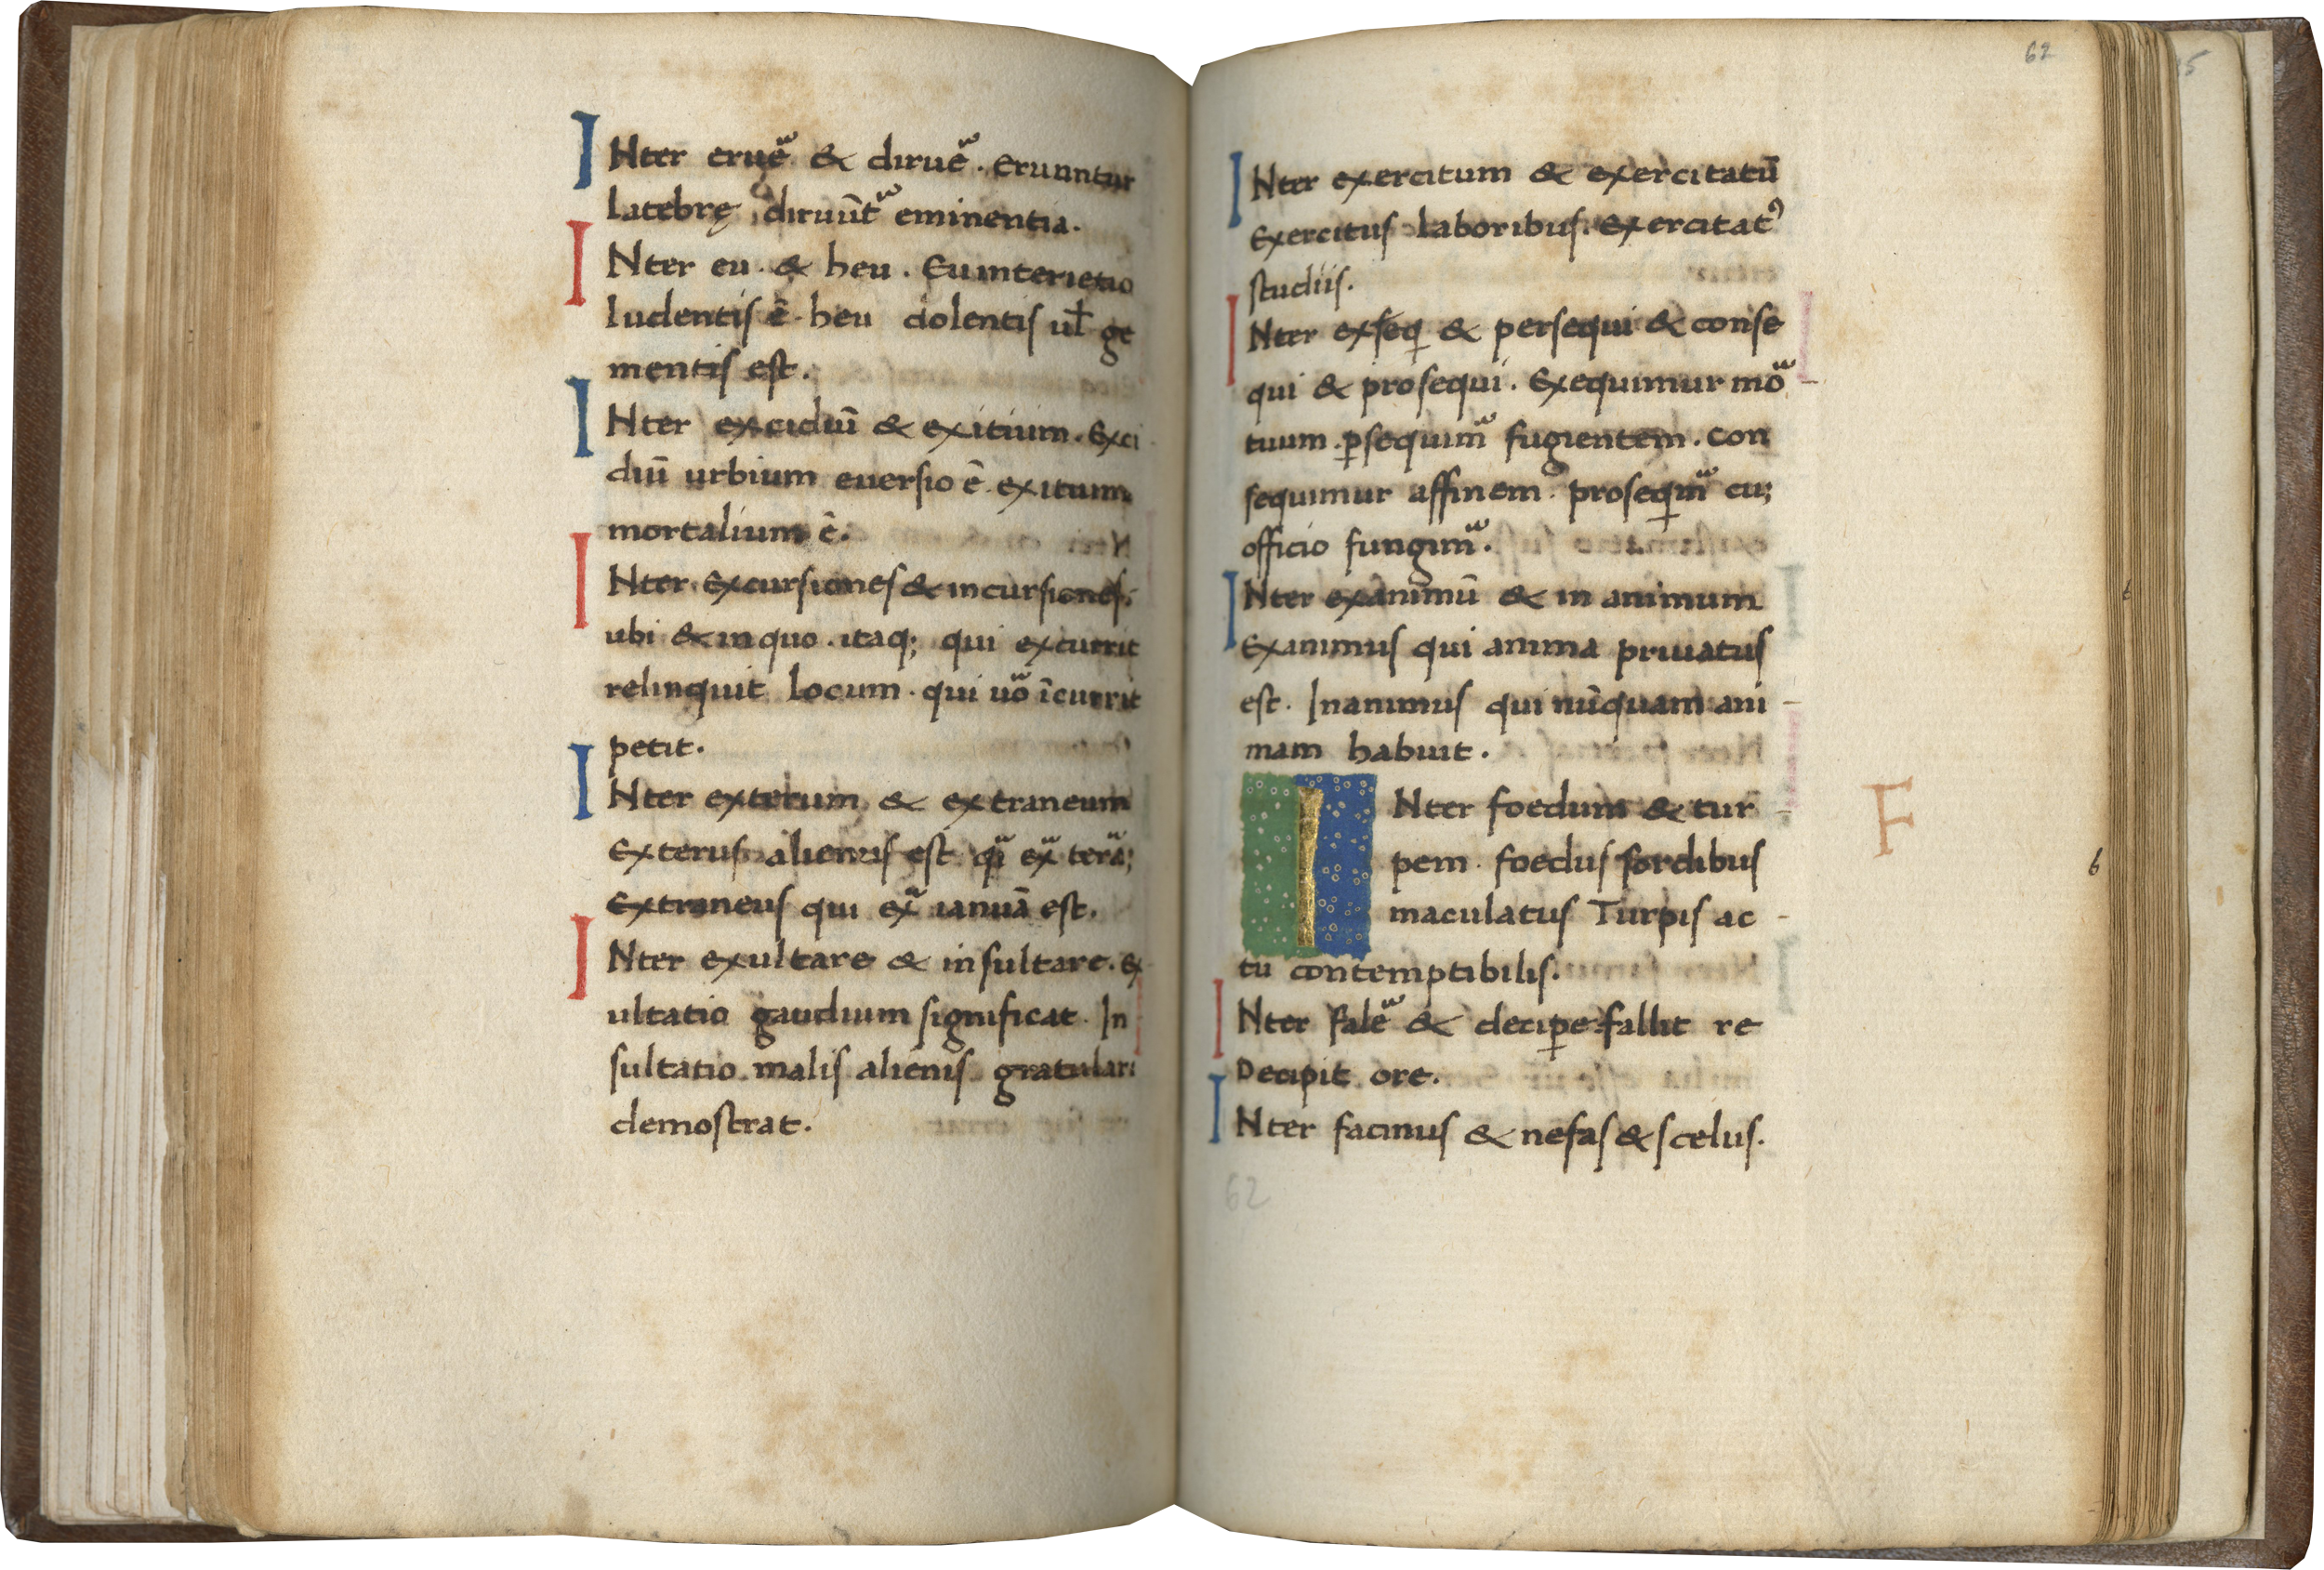 INter erue᷒ & dirue᷒. Erunntur
latebrę diruūt᷒ eminentia.
INter eu. & heu. Eu interiectio
ludentis ē. heu dolentis ul̄ ge
mentis est.
INter excidiū & exitium. Exci
diū urbium euersio ē. exitium
mortalium ē.
INter Excursiones & incursiones.
ubi & in quo. itaq; qui excurrit
relinquit locum. qui uo᷒ īcurrit
petit.
INter exterum & extraneum
Exterus alienus est. qi᷒ ex᷒ terā;
Extraneus qui ex᷒ ianuā est.
INter exultare & insultare. Ex
ultatio gaudium significat. In
sultatio malis alienis gratulari
demostrat.
62
INter exercitum & exercitatū
Exercitus laboribus. exercitatꝰ
studiis.
INter exseq̇ & persequi & conse
qui & prosequi. Exequimur mo᷒
tuum. ꝑsequim᷒ fugientem. Con
sequimur affinem. proseqim᷒ cu;
officio fungim᷒.
INter exanimū & in animum
Exanimus qui anima priuatus
est. Inanimus qui nūquam ani
mam habuit.
INter foedum & tur
F
pem. foedus sordibus
maculatus Turpis ac
tu contemptibilis.
INter fale᷒ & deciꝑe. fallit re
Decipit ore.
INter facinus & nefas & scelus.
62